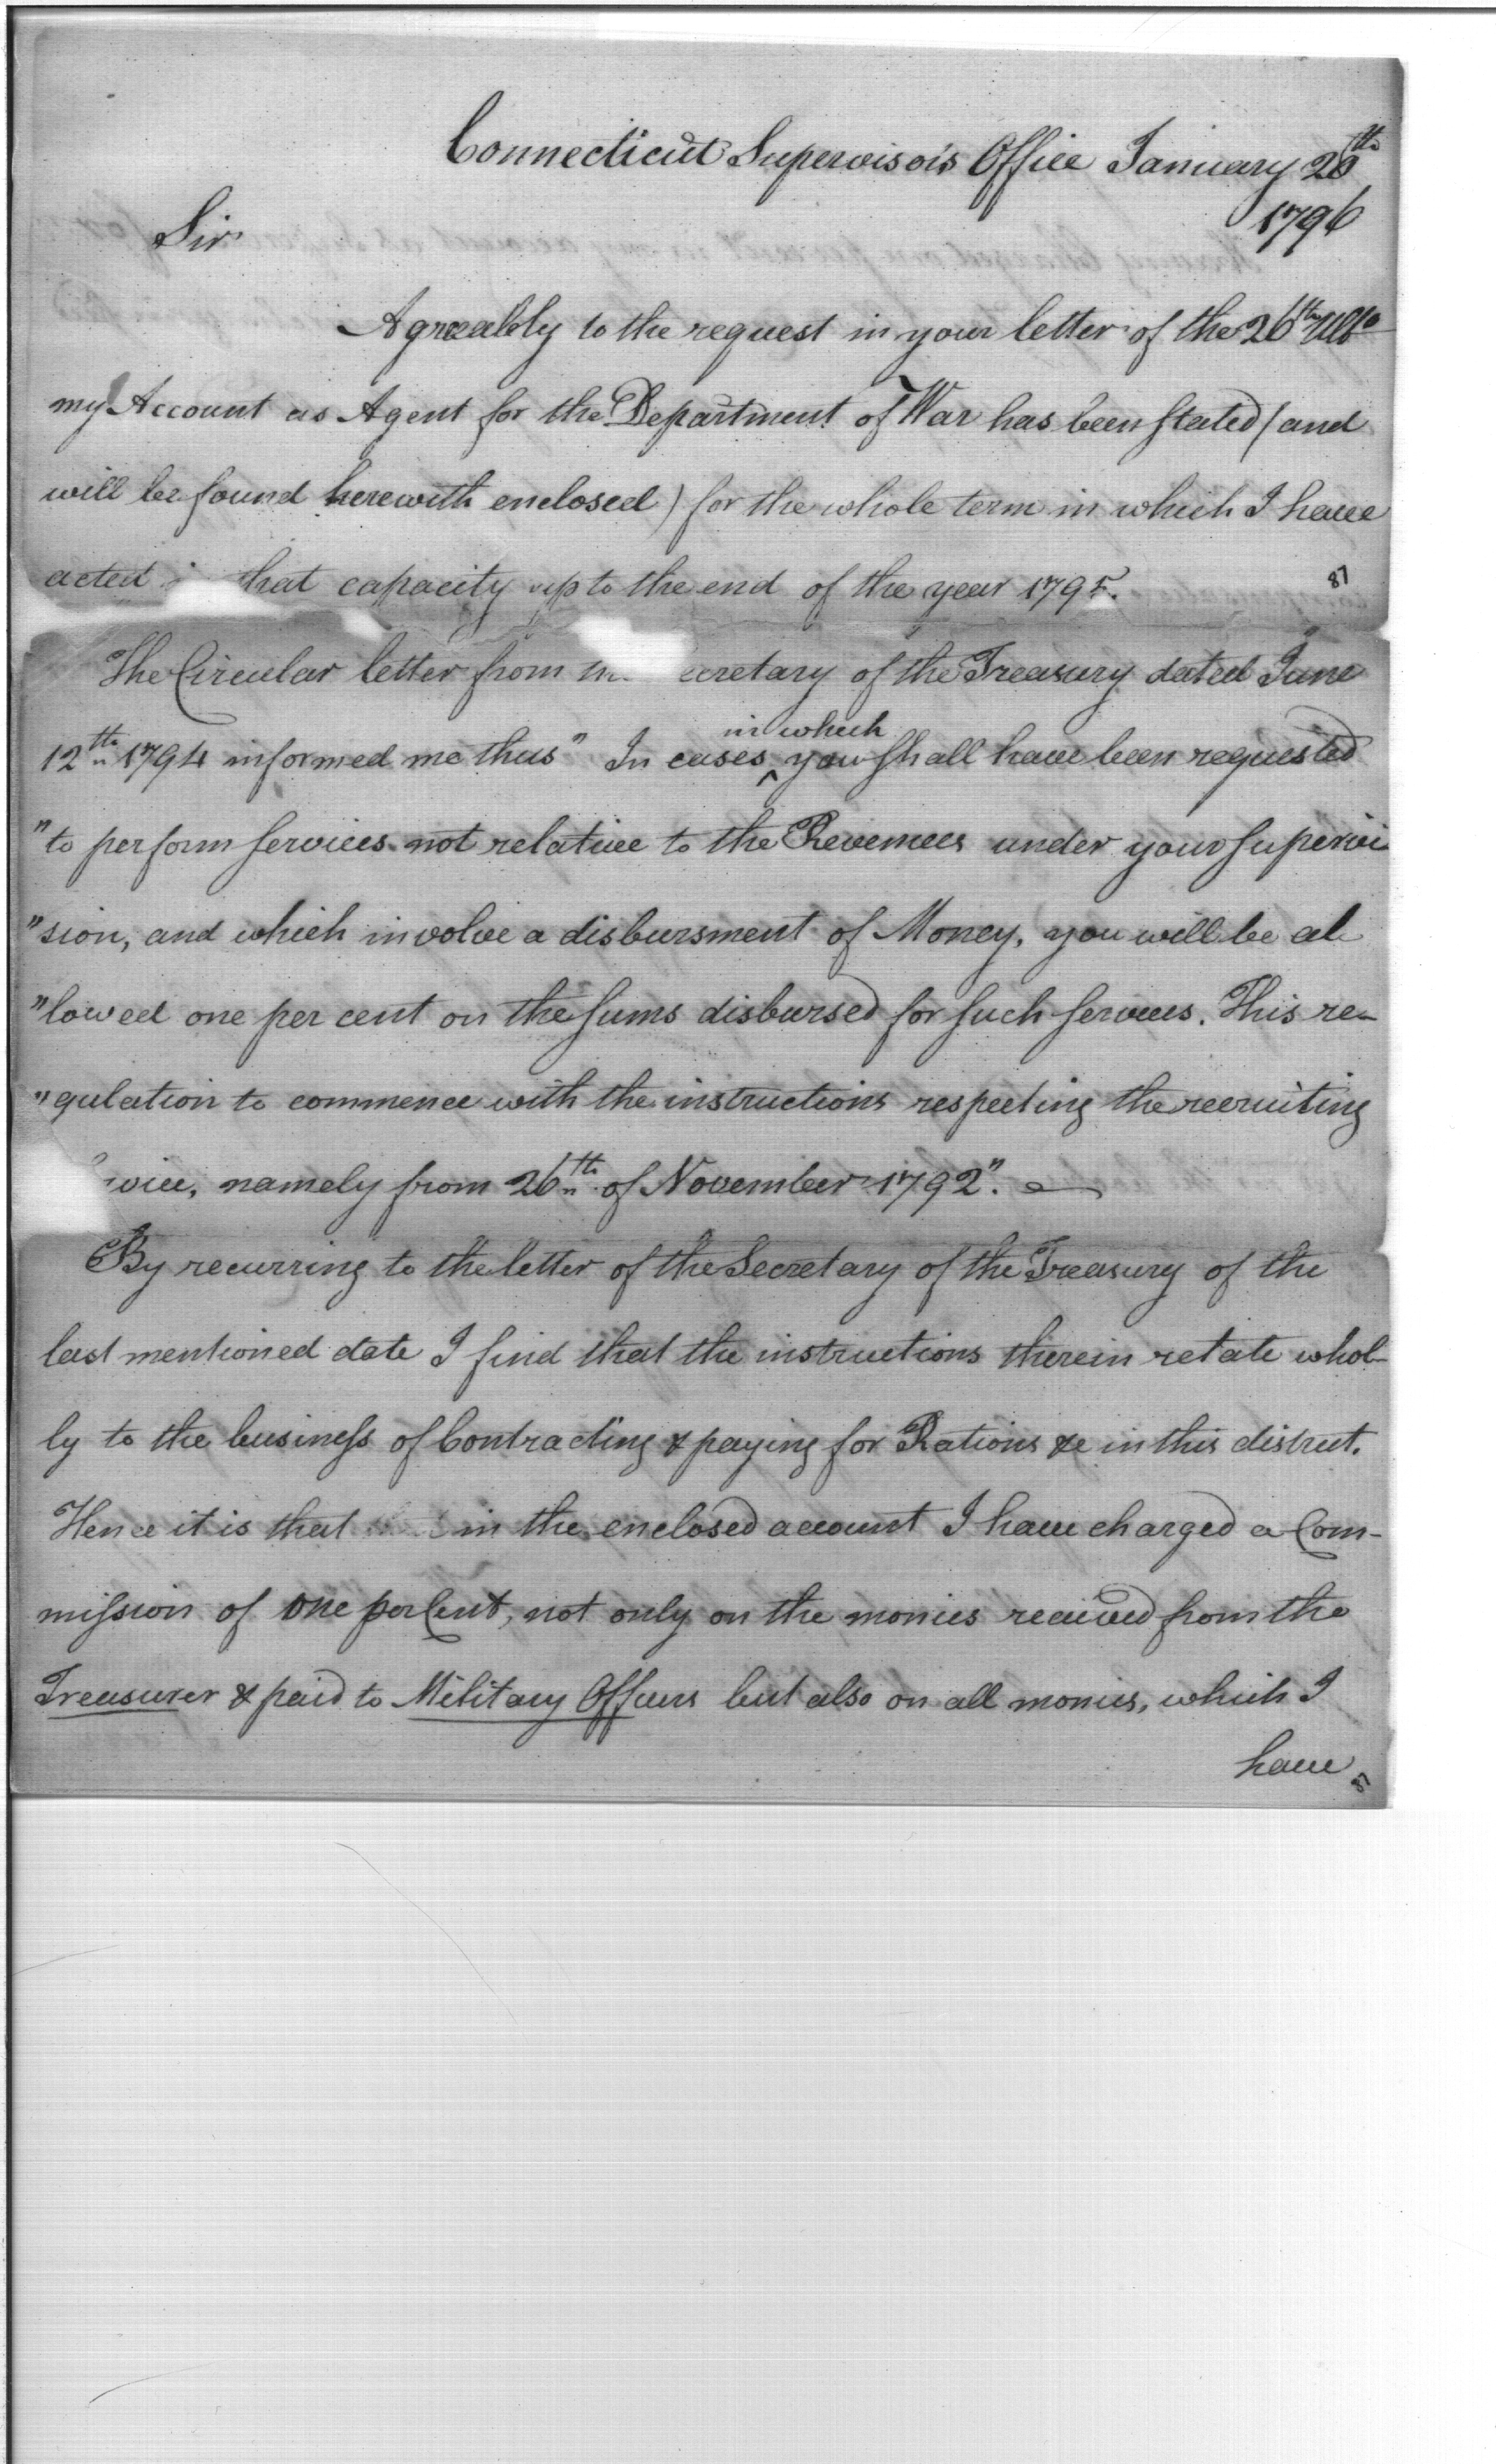 Connecticut Supervisors Office January 20th
1796
Sir
Agreeably to the request in your letter of the 26th Ulto
my Account as Agent for the Department of War has been stated (and
will be found herewith enclosed) for the whole term in which I have
acted that capacity up to the end of the year 1795.
87
The Circular letter from ecretary of the Treasury dated June
in which
12th 1794 informed me thus" In cases ^ you shall have been requested
"to perform services not relative to the Revenues under your supervi
"sion, and which involve a disbursment of Money, you will be al
"lowed one per cent on the sums disbursed for such services. This re-
"gulation to commence with the instructions respecting the recruiting
vice, namely from 26th of November 1792".
By recurring to the letter of the Secretary of the Treasury of the
last mentioned date I find that the instructions therein relate whol-
ly to the business of Contracting & paying for Rations &c in this district.
Hence it is that in the enclosed account I have charged a Com-
mission of One per Cent, not only on the monies received from the
Treasurer & paid to Military Officers but also on all monies, which I
have
87